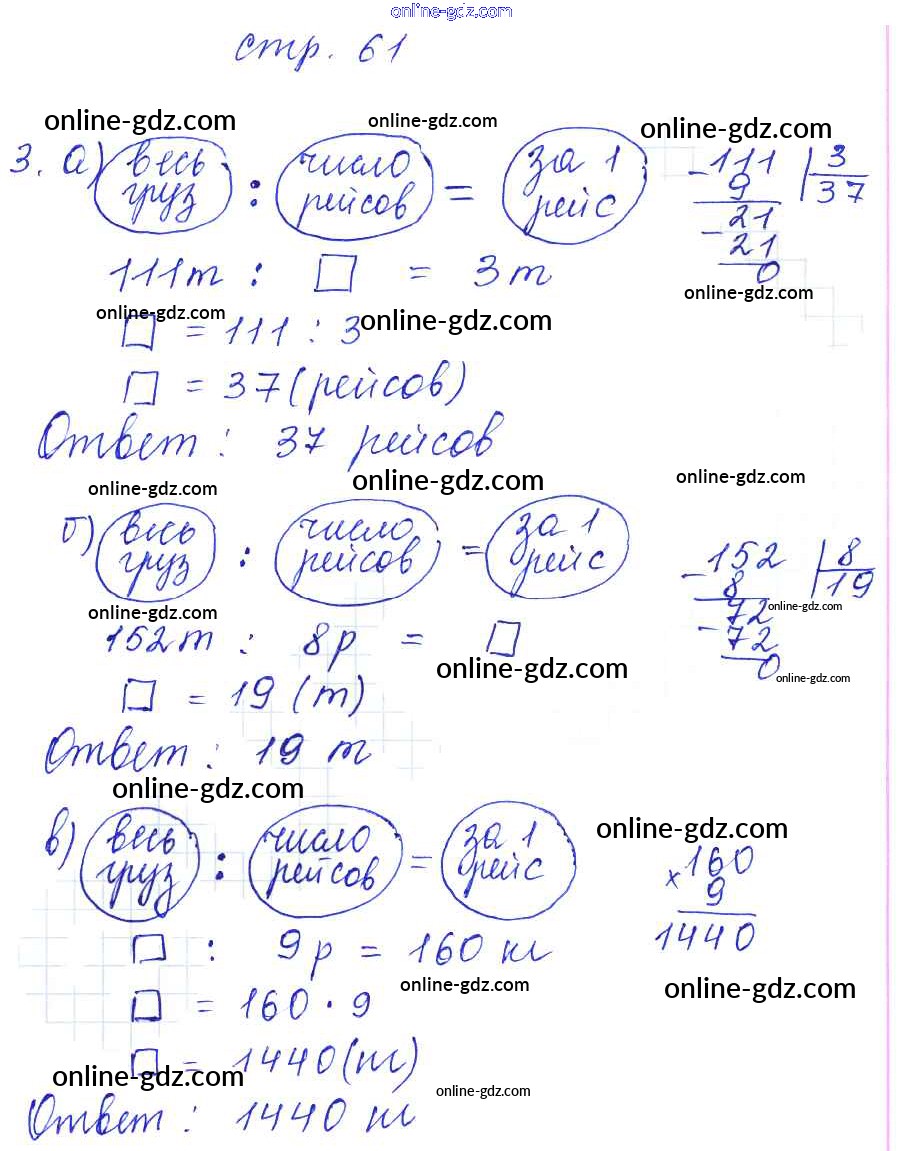 online-gdz.com
стр. 61
online-gdz.com online-gdz.com online-gdz.com
3. а) весь груз : число рейсов = за 1 рейс
111т : □ = 3т
online-gdz.com
□ = 111 : 3 online-gdz.com
□ = 37 (рейсов)
Ответ : 37 рейсов
-111 3
9 37
-21
21
0
online-gdz.com
online-gdz.com online-gdz.com online-gdz.com
б) весь груз : число рейсов = за 1 рейс
online-gdz.com
152т : 8р = □
online-gdz.com
□ = 19 (т)
Ответ : 19 т
-152 8
8 19
72 online-gdz.com
-72
0 online-gdz.com
online-gdz.com
в) весь груз : число рейсов = за 1 рейс
□ : 9р = 160 кг
□ = 160 · 9 online-gdz.com
□ = 1440 (кг)
online-gdz.com online-gdz.com
Ответ : 1440 кг
online-gdz.com
×160
9
1440
online-gdz.com